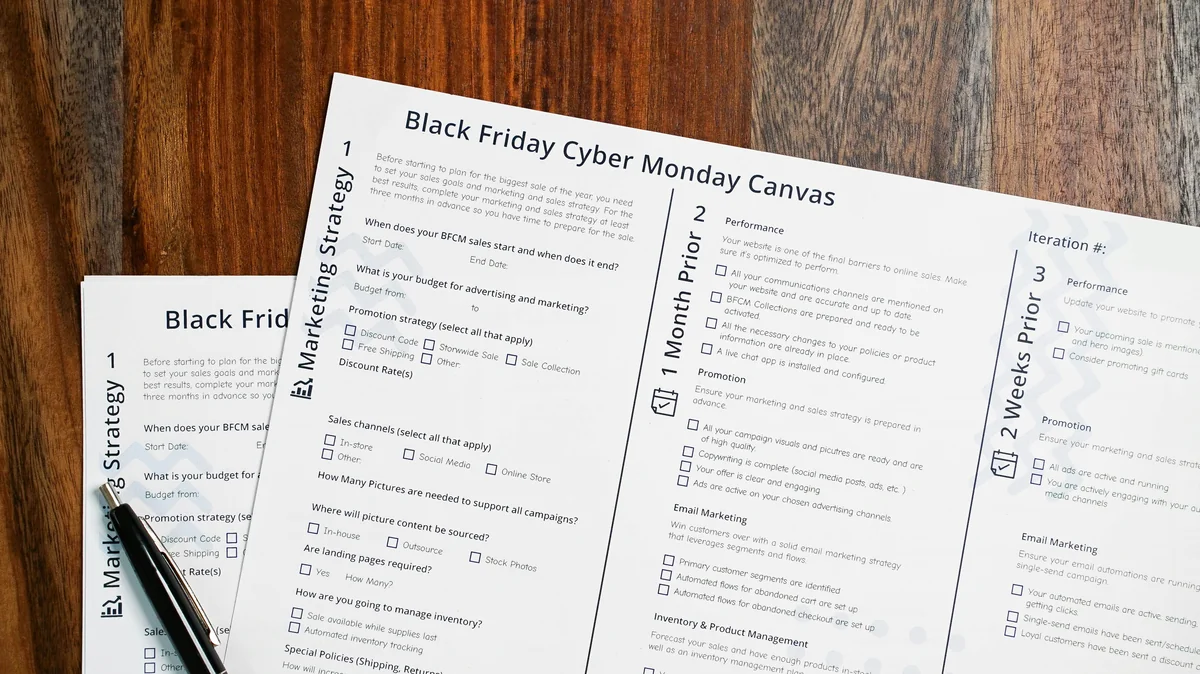 Black Friday Cyber Monday Canvas
1
Marketing Strategy
Before starting to plan for the biggest sale of the year, you need
to set your sales goals and marketing and sales strategy. For the
best results, complete your marketing and sales strategy at least
three months in advance so you have time to prepare for the sale
When does your BFCM sales start and when does it end?
Start Date:
End Date:
What is your budget for advertising and marketing?
Budget from:
to
Promotion strategy (select all that apply)
Discount Code
Storwwide Sale
Sale Collection
Free Shipping
Other:
Discount Rate(s)
Sales channels (select all that apply)
In-store
Social Media
Online Store
Other:
How Many Pictures are needed to support all campaigns?
Where will picture content be sourced?
In-house
Outsource
Stock Photos
Are landing pages required?
Yes
How Many?
How are you going to manage inventory?
Sale available while supplies last
Automated inventory tracking
Special Policies (Shipping, Returns
How will
2
1 Month Prior
Performance
Your website is one of the final barriers to online sales. Make
sure it's optimized to perform.
All your communications channels are mentioned on
your website and are accurate and up to date
BFCM Collections are prepared and ready to be
activated.
All the necessary changes to your policies or product
information are already in place.
A live chat app is installed and configured.
Promotion
Ensure your marketing and sales strategy is prepared in
advance.
All your campaign visuals and picutres are ready and are
of high quality
Copywriting is complete (social media posts, ads, etc. )
Your offer is clear and engaging
Ads are active on your chosen advertising channels.
Email Marketing
Win customers over with a solid email marketing strategy
that leverages segments and flows.
Primary customer segments are identified
Automated flows for abandoned cart are set up
Automated flows for abandoned checkout are set up
Inventory & Product Management
Forecast your sales and have enough products in-stock
well as an inventory management
Iteration #:
3
2 Weeks Prior
Performance
Update your website to promote
Your upcoming sale is mentione
and hero images).
Consider promoting gift cards
Promotion
Ensure your marketing and sales strat
All ads are active and running
You are actively engaging with your
media channels
Email Marketing
Ensure your email automations are running
single-send campaign.
Your automated emails are active, sending,
getting clicks.
Single-send emails have been sent/schedule
Loyal customers have been sent a discount
Black Frid
1
Marketing Strategy
Before starting to plan for the big
to set your sales goals and mark
best results, complete your mark
three months in advance so you
When does your BFCM sale
Start Date:
What is your budget for a
Budget from:
Promotion strategy (se
Discount Code
ee Shipping
t Rate(s)
Sales
(se
In-s
Other